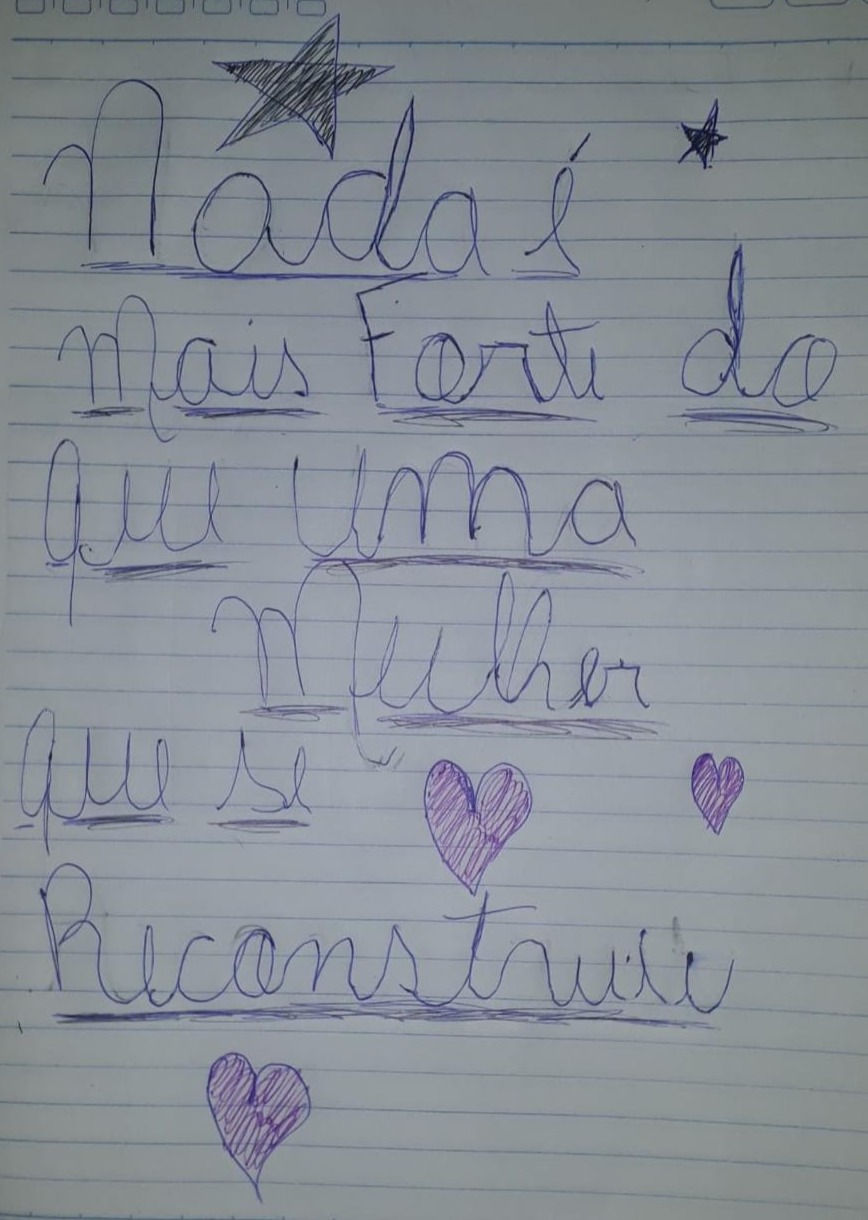 Nada é
mais Forte do
que uma
Mulher
que se
Reconstruiu